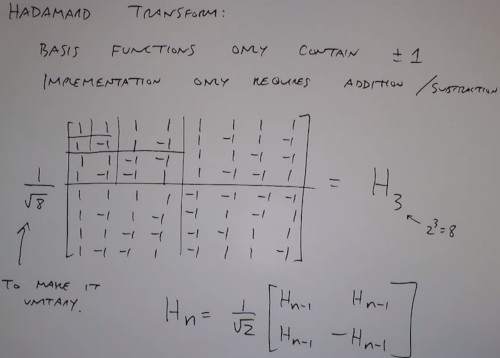 HADAMARD TRANSFORM:
BASIS FUNCTIONS ONLY CONTAIN ±1
IMPLEMENTATION ONLY REQUIRES ADDITION/SUBTRACTION
1 1 1 1 1 1 1 1
1 -1 1 -1 1 -1 1 -1
1 1 -1 -1 1 1 -1 -1
1 -1 -1 1 1 -1 -1 1
1/√8 = H₃
1 1 1 1 -1 -1 -1 -1
1 -1 1 -1 -1 1 -1 1
1 1 -1 -1 -1 -1 1 1
1 -1 -1 1 -1 1 1 -1
2³=8
TO MAKE IT
UNITARY.
Hn = 1/√2 [Hn-1 Hn-1
Hn-1 -Hn-1]